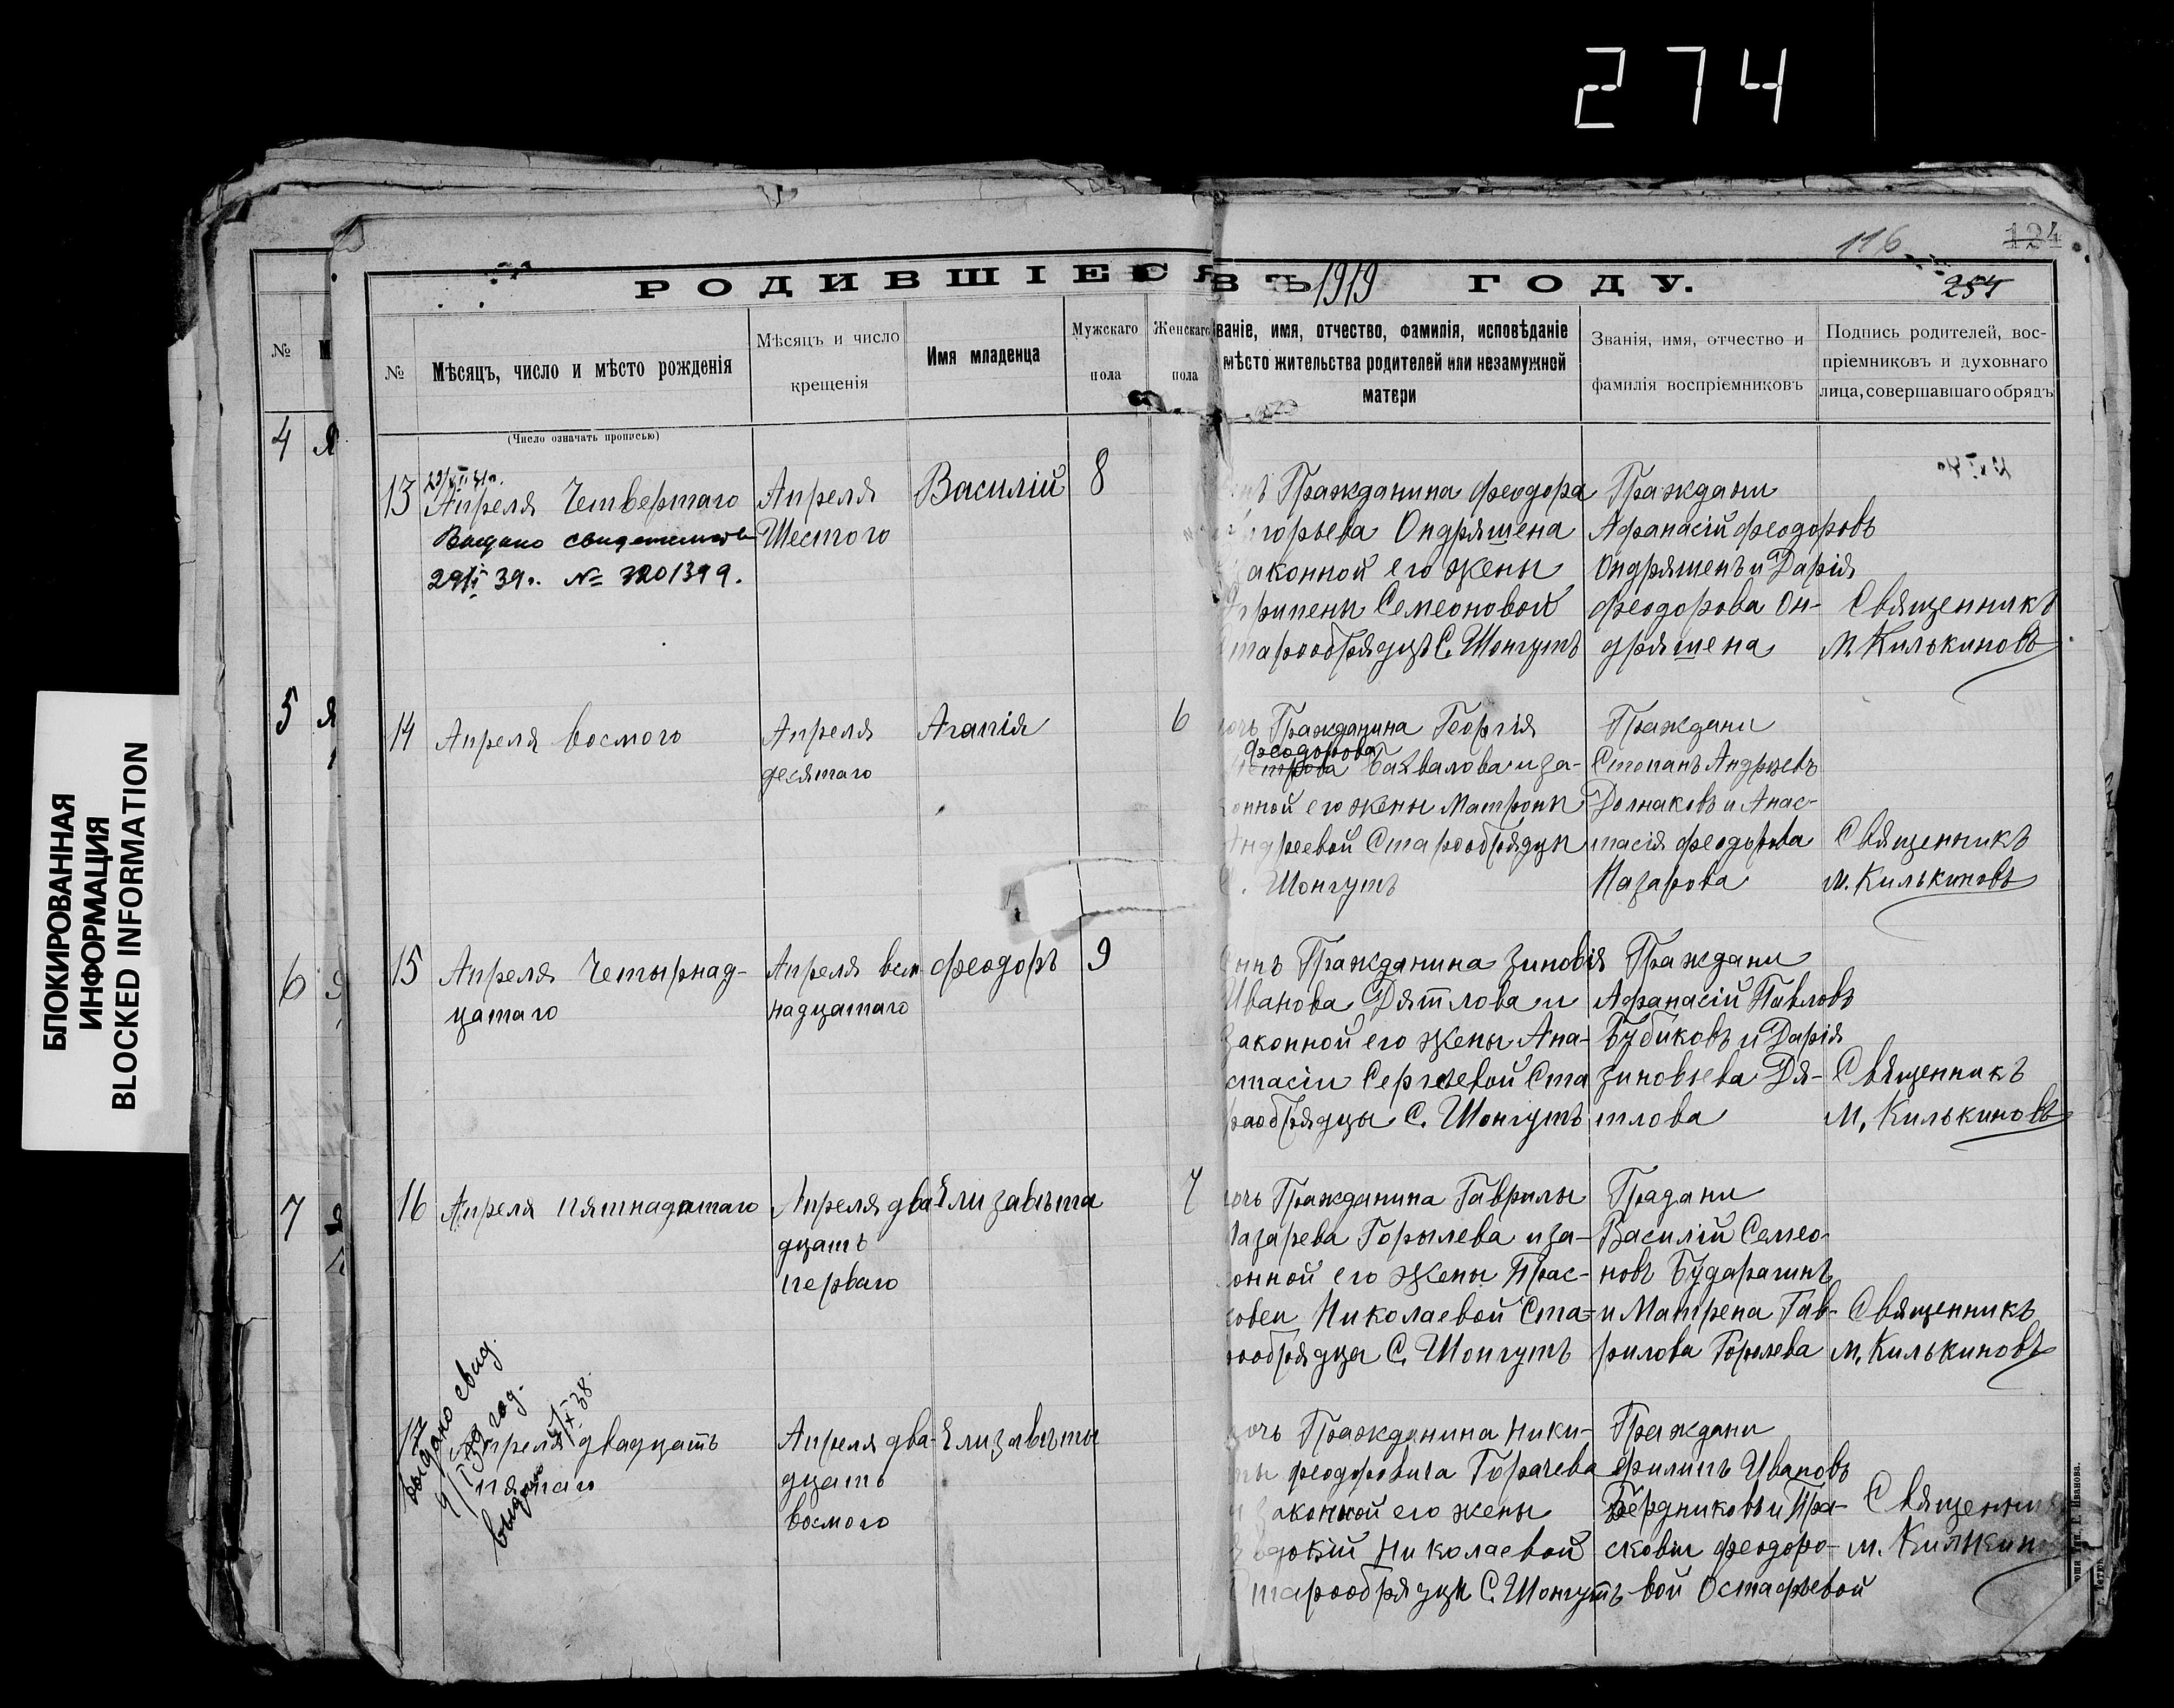 274
БЛОКИРОВАННАЯ
ИНФОРМАЦИЯ
BLOCKED INFORMATION
116
124
254
РОДИВШІЕСЯ ВЪ 1919 ГОДУ.
№
М
4
5
6
7
№
Мѣсяцъ, число и мѣсто рожденія
(Число означать прописью)
Мѣсяцъ и число
крещенія
Имя младенца
Мужскаго
пола
Женскаго
пола
ваніе, имя, отчество, фамилія, исповѣданіе
мѣсто жительства родителей или незамужной
матери
Званія, имя, отчество и
фамилія воспріемниковъ
Подпись родителей, вос-
пріемниковъ и духовнаго
лица, совершавшаго обрядъ
13
Апреля Четвертаго
Выдано свидетельство
29/ 39г. № 3201399.
Апреля
Шестого
Василій
8
Гражданина Феодора
горьева Ондряшена
аконной его жены
рипены Семеоновой
тарообрядцѣ С. Шонгутъ
Граждани
Афанасій Феодоровъ
Ондряшенъ и Дарія
Феодорова Он-
дряшена
Священникъ
М. Килькиновъ
14
Апреля восмого
Апреля
десятаго
Агапія
6
очь Гражданина Георгія
Феодорова
трова Бахвалова и за-
онной его жены Матроны
Андреевой Старообрядцы
С. Шонгутъ
Граждани
Степанъ Андреевъ
Долнаковъ и Анас-
тасія Феодорова
Назарова
Священникъ
М. Килькиновъ
15
Апреля Четырнад-
цатаго
Апреля всем
надцатаго
Феодоръ
9
ынъ Гражданина Зиновія
Иванова Дятлова и
Законной его жены Ана-
стасіи Сергеевой Ста
раобрядцы С. Шонгутъ
Граждани
Афанасій Павловъ
Бубиковъ и Дарія
Зиновьева Дя-
тлова
Священникъ
М. Килькиновъ
16
Апреля пятнадатаго
Апреля два-
дцать
перваго
Елизавѣта
7
очь Гражданина Гаврилы
Назарева Горылева и за-
онной его жены Прас-
ковеи Николаевой Ста-
рообрядца С. Шонгутъ
Градани
Василій Семео-
новъ Бударагинъ
и Матрена Гав-
рилова Горылева
Священникъ
М. Килькиновъ
17
выдано свид.
Апреля двадцать
пятаго
выдано
Апреля два-
дцать
восмого
Елизавѣта
очь Гражданина Ники-
ты Феодоровича Горачева
и законной его жены
Евдокій Николаевой
Старообрядцы С. Шонгутъ
Граждани
Филипъ Ивановъ
Бердниковъ и Пра-
сковіи Феодоро-
вой Остафьевой
Священни
М. Килькин